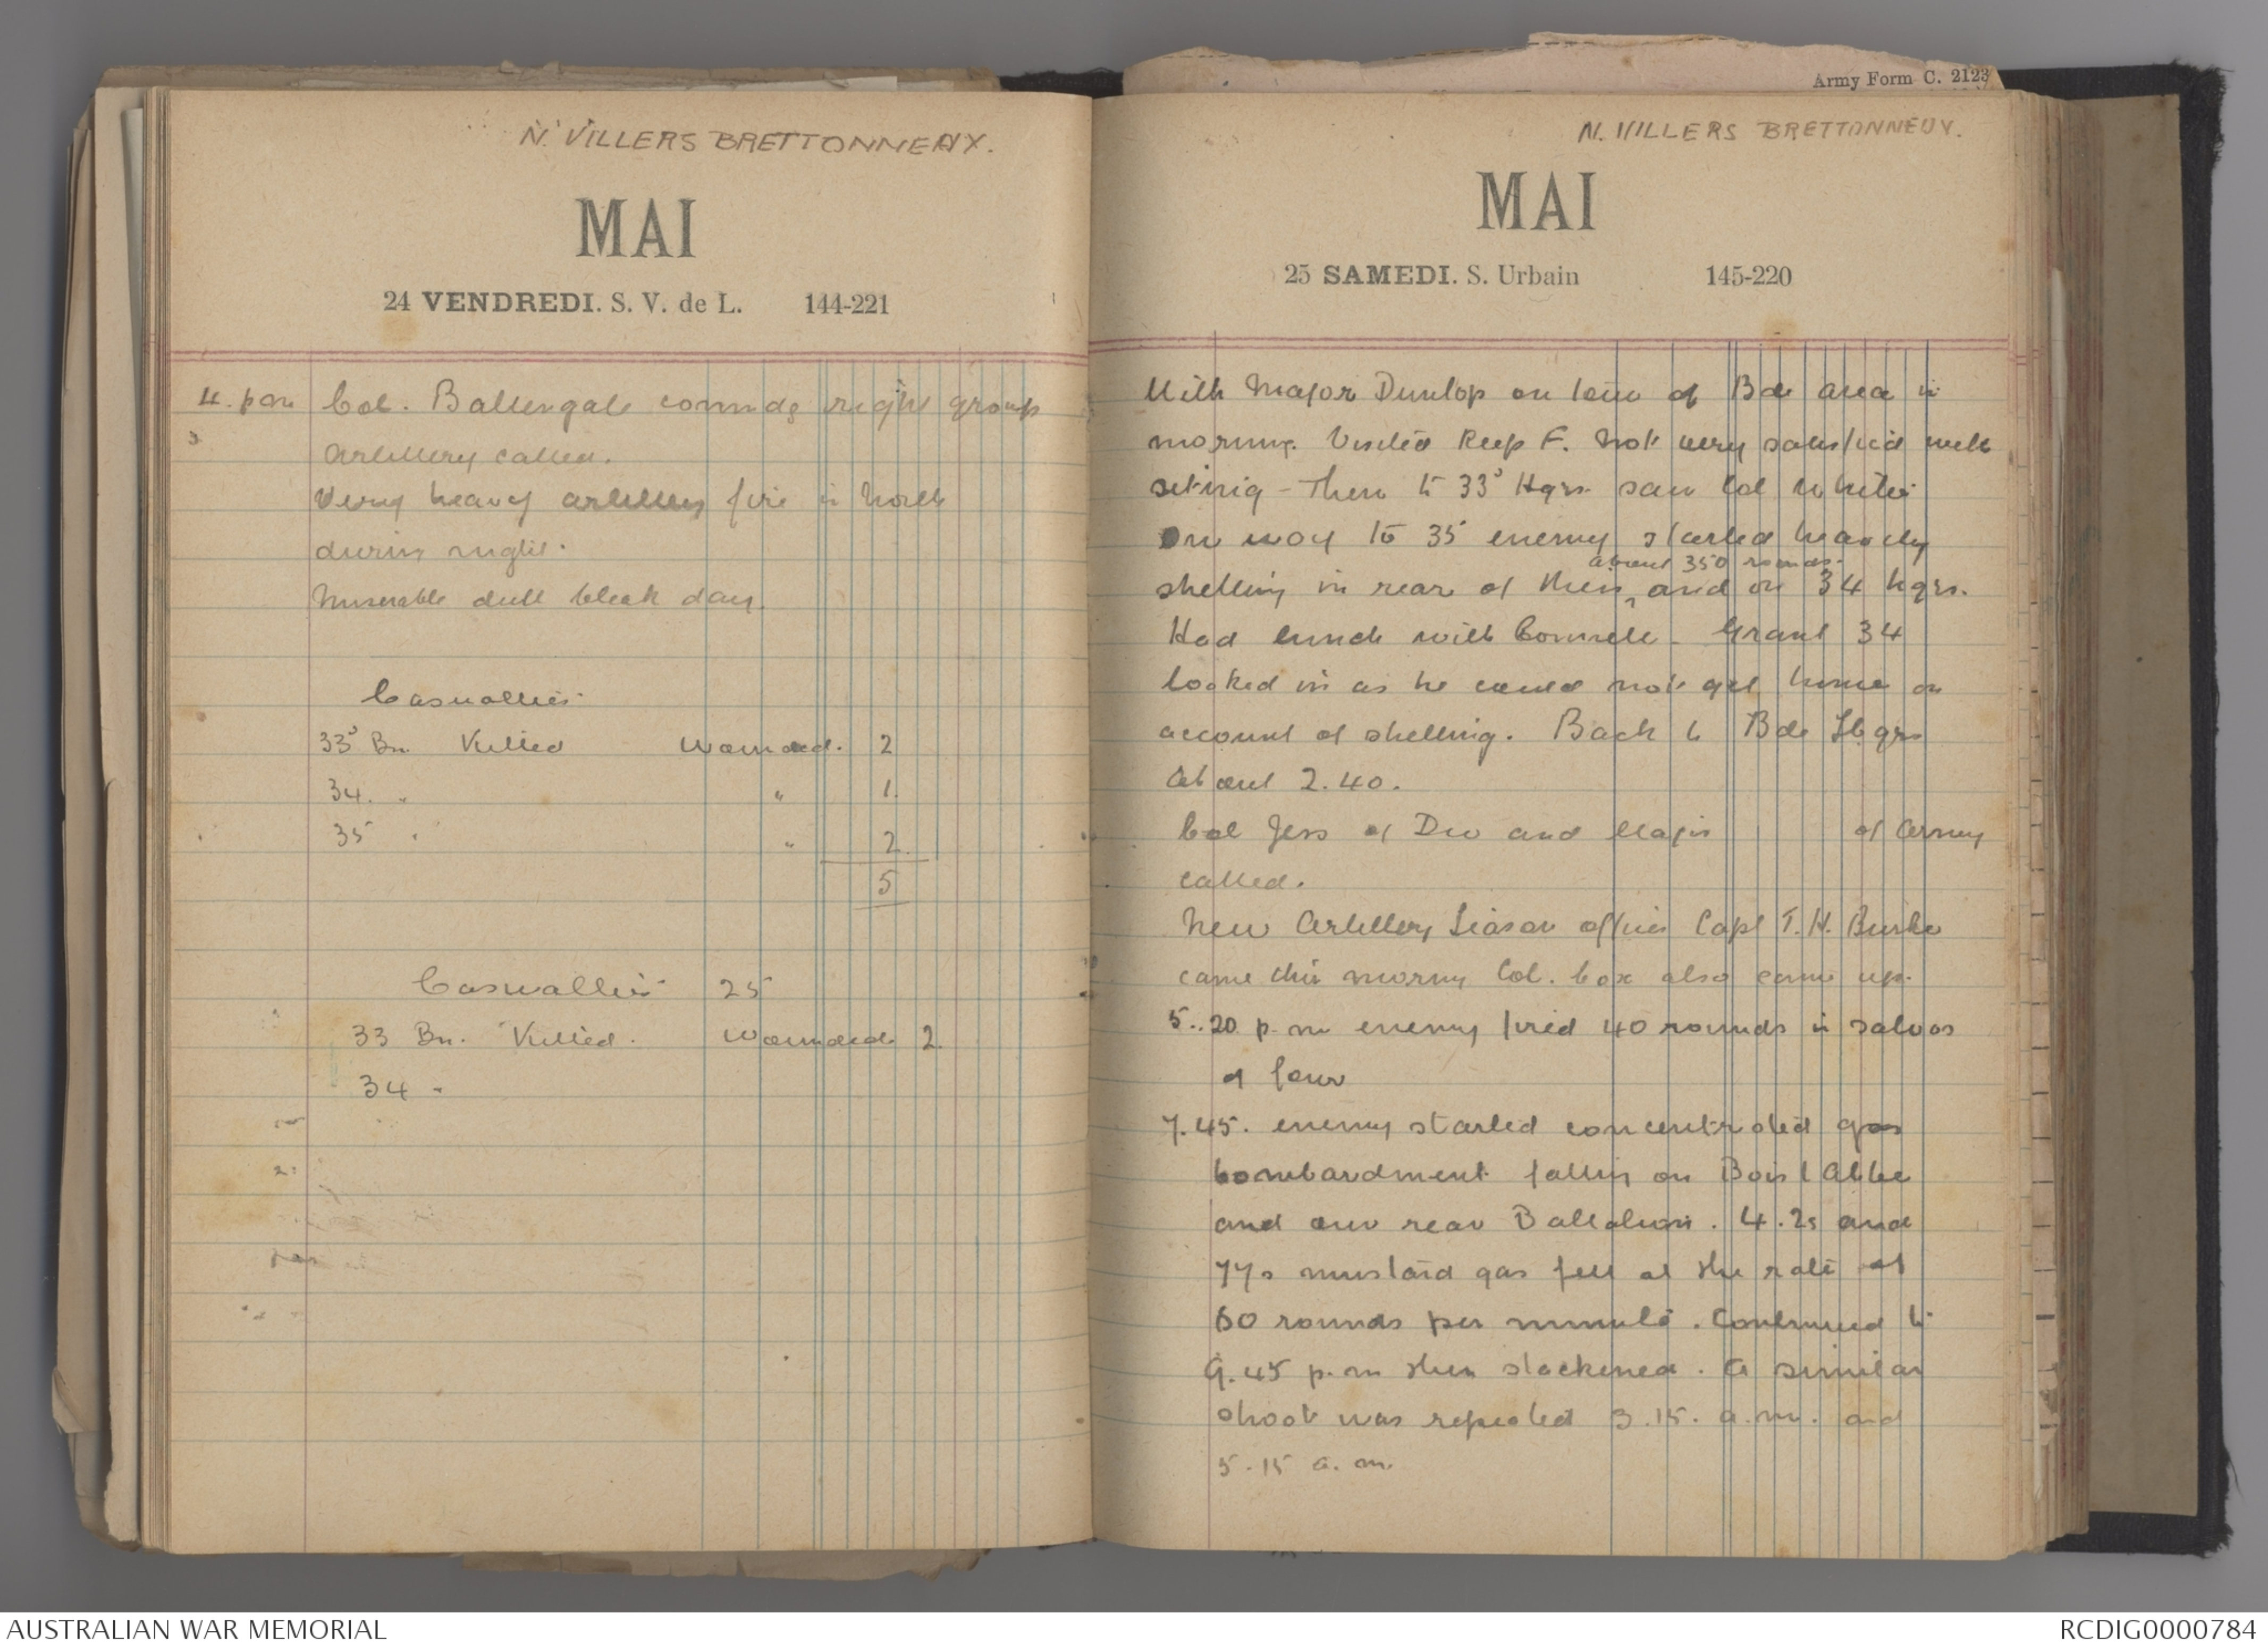 N. VILLERS BRETTONNEAUX.
MAI
24 VENDREDI. S. V. de L. 144-221
4. pm Col. Ballengale commdg right group
artillery called.
Very heavy artillery fire in North
during night.
Miserable dull bleak day.
Casualties
33 Bn Killed wounded. 2
34. " " 1.
35 " " 2.
5
Casualties 25
33 Bn. Killed. Wounded 2.
34 "
Army Form C. 2123
N. VILLERS BRETTONNEUX.
MAI
25 SAMEDI. S. Urbain 145-220
With Major Dunlop on tour of Bde area in
morning. Visited Keep F. Not very satisfied with
siting - Then to 33 Hqrs. saw Col White
On way to 35 enemy started heavily
about 350 rounds.
shelling in rear of them, and on 34 hqrs.
Had lunch with Connell - Grant 34
looked in as he could not get home on
account of shelling. Back to Bde Hqrs
about 2.40.
Col Jess of Div and Major of Army
called.
New Artillery Liason officer Capt T. H. Burke
came this morng Col. Cox also came up.
5..20 p.m enemy fired 40 rounds in salvos
of four
7.45. enemy started concentrated gas
bombardment falling on Bois l Abbe
and our rear Battalion. 4.2s and
77s mustard gas fell at the rate of
60 rounds per minute. Continued to
9.45 p.m then slackened. A similar
shoot was repeated 3.15. a.m. and
5-15 a.m.
AUSTRALIAN WAR MEMORIAL
RCDIG0000784